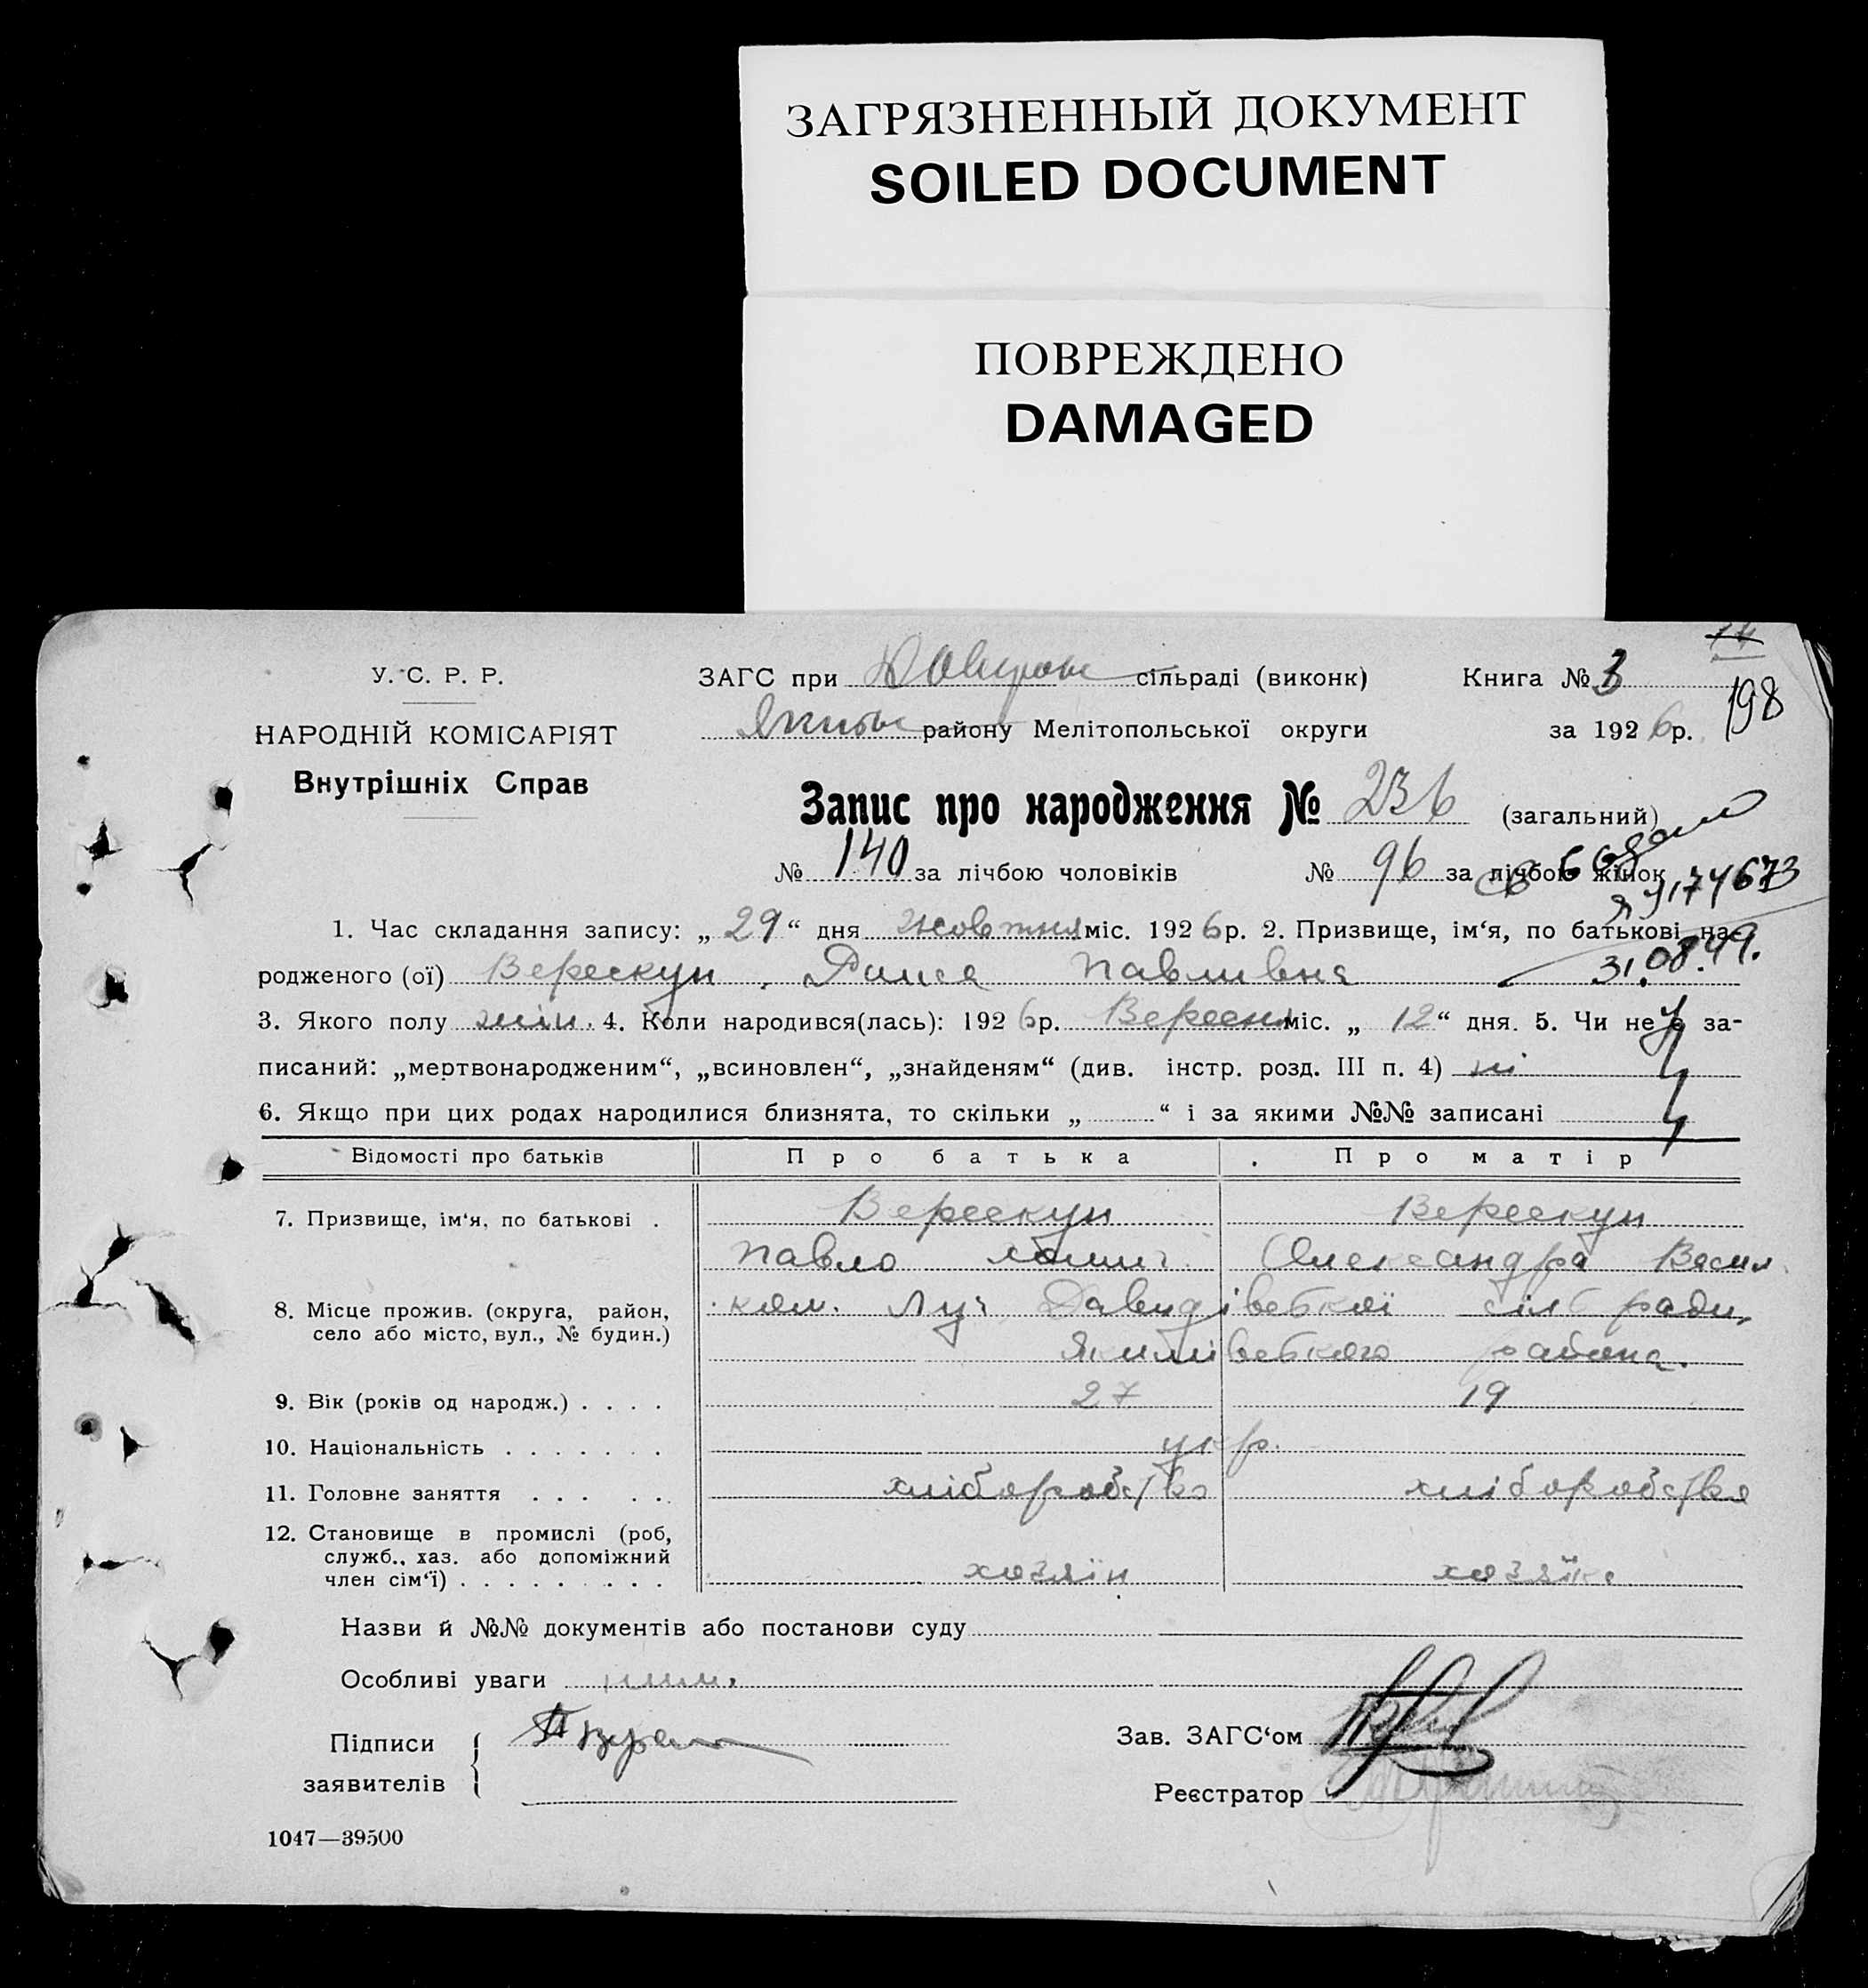 ЗАГРЯЗНЕННЫЙ ДОКУМЕНТ
SOILED DOCUMENT
ПОВРЕЖДЕНО
DAMAGED
У. С. Р. Р.
НАРОДНІЙ КОМІСАРІЯТ
Внутрішніх Справ
ЗАГС при сільраді (виконк)
Книга № 3
198
району Мелітопольської округи
за 1926 р.
Запис про народження № 236 (загальний)
№ 140 за лічбою чоловіків № 96 за лічбою жінок
174673
31.08.49.
1. Час складання запису: „29“ дня жовтня міс. 1926 р. 2. Призвище, ім‘я, по батькові на-
родженого (ої) Верескун, Раися Павливна
3. Якого полу жін. 4. Коли народився(лась): 1926 р. Вересня міс. „12“ дня. 5. Чи не є за-
писаний: „мертвонародженим“, „всиновлен“, „знайденям“ (див. інстр. розд. III п. 4) ні
6. Якщо при цих родах народилися близнята, то скільки „ “ і за якими №№ записані
Відомості про батьків Про батька Про матір
7. Призвище, ім‘я, по батькові . Верескун Верескун
Павло Олександра Васил.
8. Місце прожив. (округа, район, село або місто, вул., № будин.) Луч Давидівської сіль ради,
Якимівського района.
9. Вік (років од народж.) . . . . 27 19
10. Національність . . . . . . . укр.
11. Головне заняття . . . . . хліборобство хліборобства
12. Становище в промислі (роб, служб., хаз. або допоміжний член сім‘ї) . . . . . . . . . хозяїн хозяїка
Назви й №№ документів або постанови суду
Особливі уваги
Підписи
заявителів
Зав. ЗАГС‘ом
Реєстратор
1047—39500